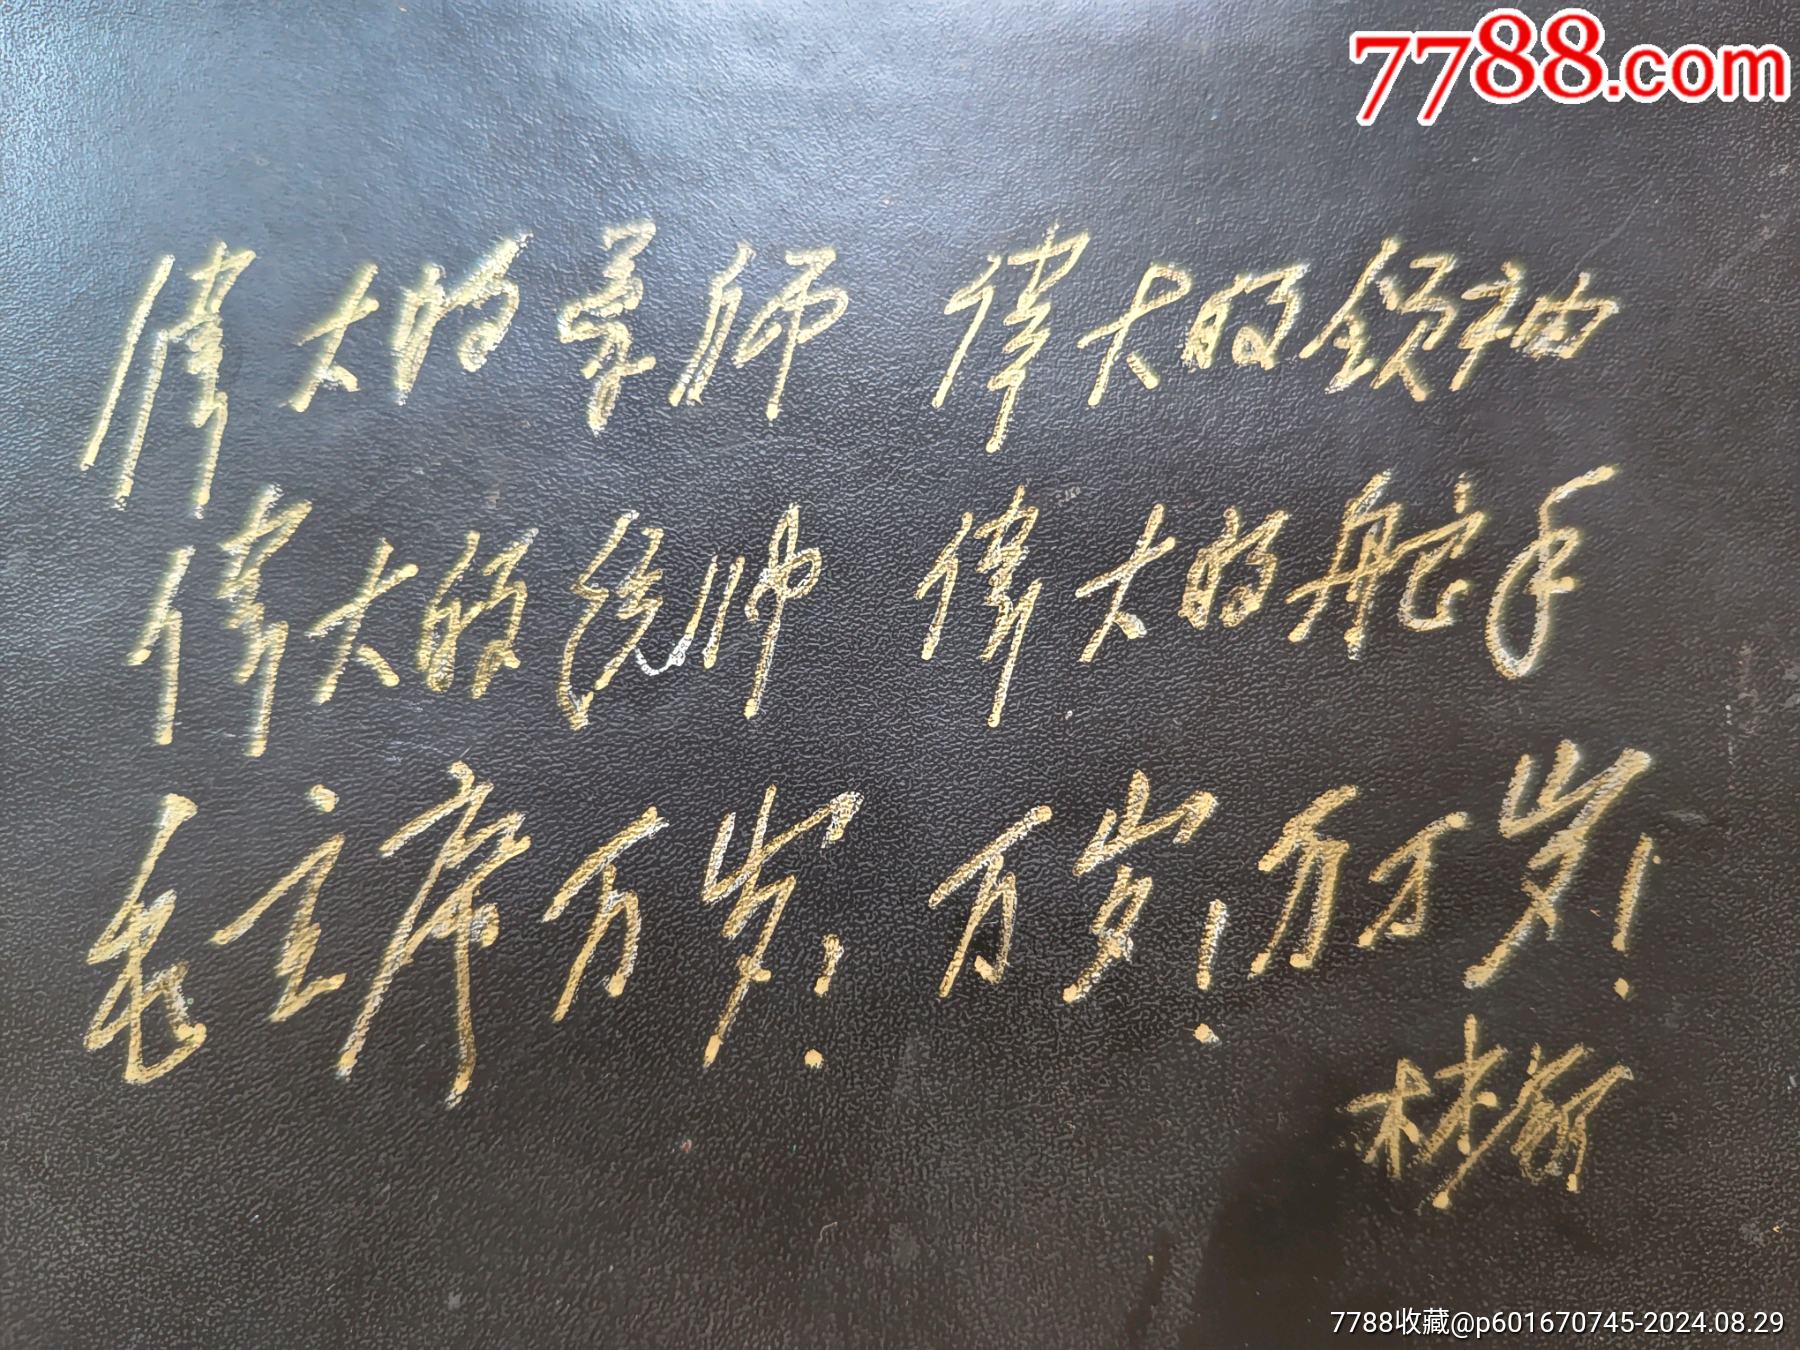 7788.com
偉大的导师 偉大的领袖
偉大的统帅 偉大的舵手
毛主席万岁！万岁！万万岁！
林彪
7788收藏@p601670745-2024.08.29